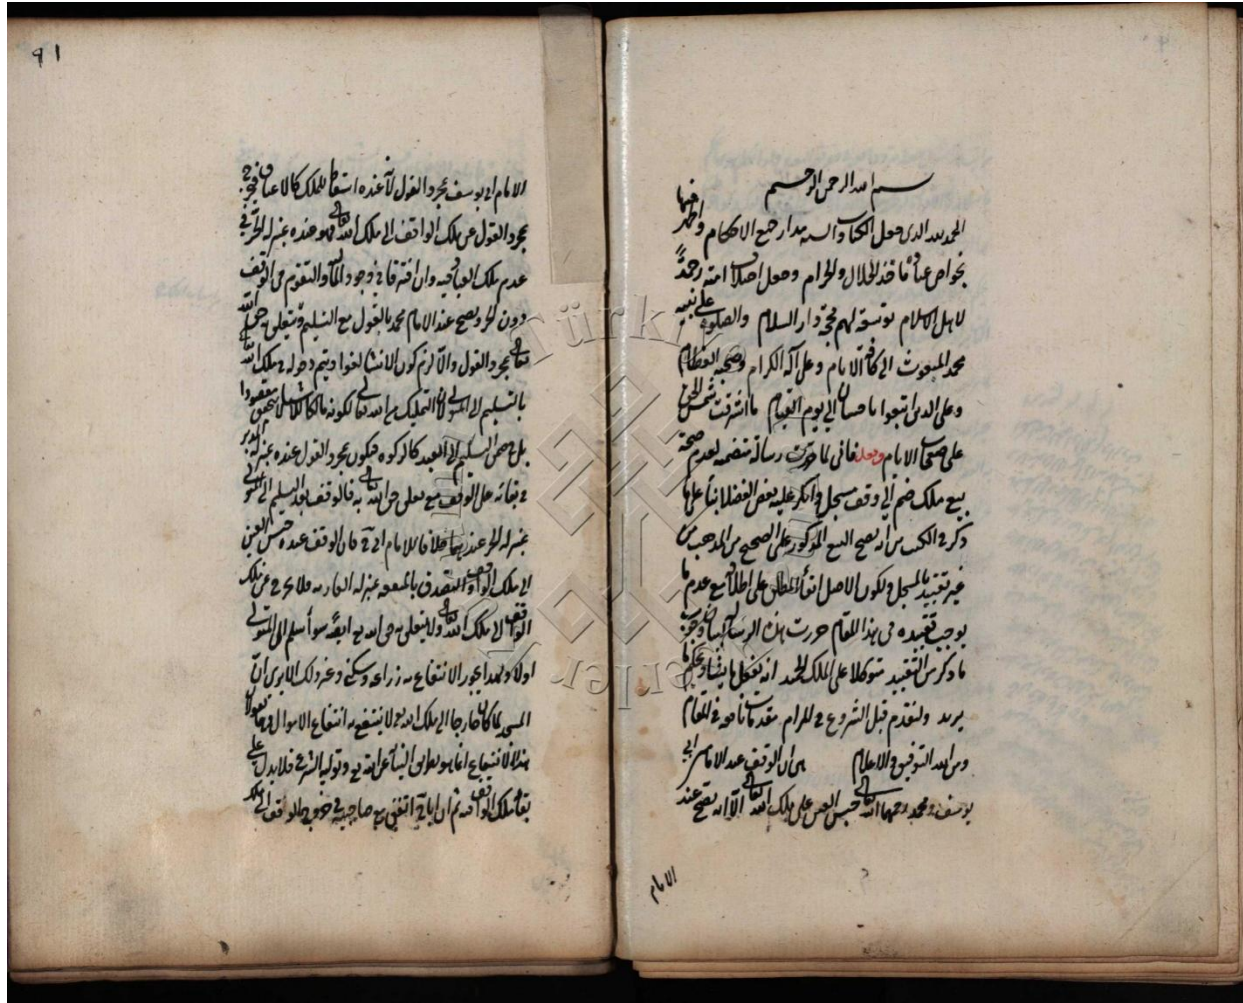 بسم الله الرحمن الرحيم
الحمد لله الذي جعل الكتاب والسنة مدار جميع الاحكام واظهر فيهما
بخواص عباده مآخذ الحلال والحرام وجعل اختلاف امته رحمة
لاهل الاسلام توسعة لهم محجة دار السلام والصلوة على نبيه
محمد المبعوث الى كافة الانام وعلى آله الكرام وصحبه العظام
وعلى الذين اتبعوا باحسان الى يوم القيام ما اشرقت شمس
على صفحات الايام وبعد فانى لما حررت رسالة متضمنة لعدم صحة
بيع ملك ضم الى وقف مسجل وانكر عليه بعض الفضلا بناء على ما
ذكر في الكتب من انه يصح البيع المذكور على الصحيح من المذهب من
غير تقييد بالمسجل ولكون الاصل ابقاء المطلق على اطلاقه مع عدم ما
يوجب تقييده في هذا المقام حررت هذه الرسالة لبيان وجوب
ما ذكر من التقييد متوكلا على الملك المجيد انه يفعل ما يشاء ويحكم ما
يريد ولنقدم قبل الشروع في المرام مقدمات نافعة في المقام
ومن الله التوفيق والاعلام هي ان الوقف عند الامامين ابى
يوسف ومحمد رحمهما الله تعالى حبس العين على ملك الله تعالى الا انه يصح عند
الامام
٨١
الامام ابى يوسف بمجرد القول لانه عنده اسقاط الملك كالاعتاق فيخرج
بمجرد القول عن ملك الواقف الى ملك الله تعالى فهو عنده بمنزلة الحر في
عدم ملك العباد فيه وان افترقا في وجود المالية والتقوم في الوقف
دون الحر ويصح عند الامام محمد بالقول مع التسليم فيتعلق به حق الله
تعالى بمجرد القول والا لزم كون الانشاء لغوا ويتم دخوله في ملك الله
بالتسليم الى المتولى لان التمليك من الله تعالى لكونه مالكا للاشياء لا يتحقق مقصودا
بل في ضمن التسليم الى العبد كالزكوة فيكون بمجرد القول عنده بمنزلة المدبر
في بقائه على الوقف مع تعلق حق الله تعالى به فالوقف بعد التسليم الى المتولى
بمنزلة الحر عندهما خلافا للامام ابى ح فان الوقف عنده حبس العين
الى ملك الواقف والتصدق بالمنفعة بمنزلة العارية فلا يخرج عن ملك
الواقف الى ملك الله تعالى ولا يتعلق به حق الله به ايضا سواء سلم الى المتولى
اولا ولهذا يجوز الانتفاع به زراعة وسكنى وغير ذلك الا يرى ان
المسجد لما كان خارجا الى ملك الله تعالى لا ينتفع به انتفاع الاموال
هذا الانتفاع انما هو بطريق النيابة عن الله تعالى وتولية الشرع فلا يدل على
بقاء ملك الواقف فيه ثم ان ابا ح اتفق مع صاحبيه في خروج الوقف الى ملك